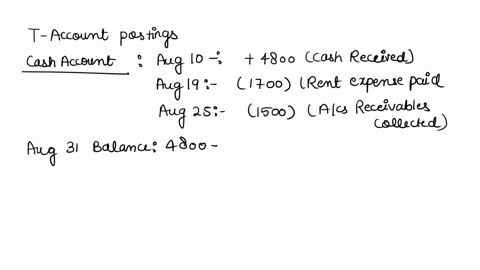 T-Account postings
Cash Account : Aug 10 -: + 4800 (Cash Received)
Aug 19 :- (1700) (Rent expense paid
Aug 25 :- (1500) (A/cs Receivables
Collected)
Aug 31 Balance: 4800 -